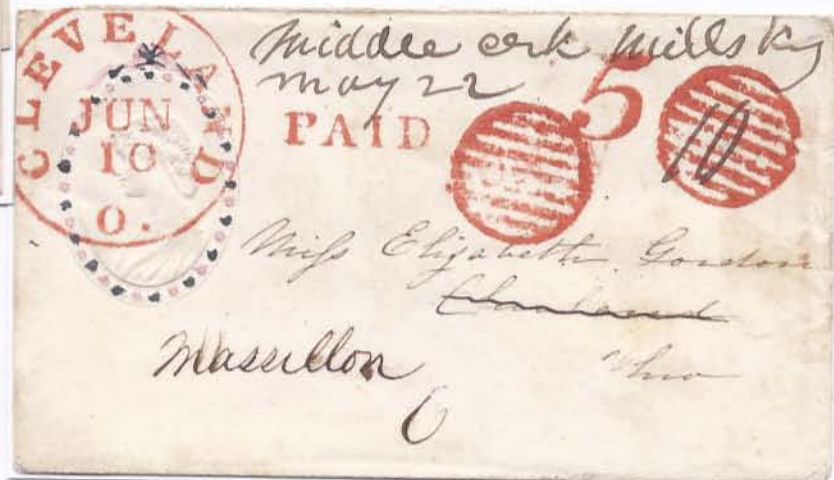 CLEVELAND
JUN
10
O.
Middle cork Mills Ky
May 22
PAID
5
10
Miss Elizabeth Gordon
Cleaveland
Ohio
Massillon
O